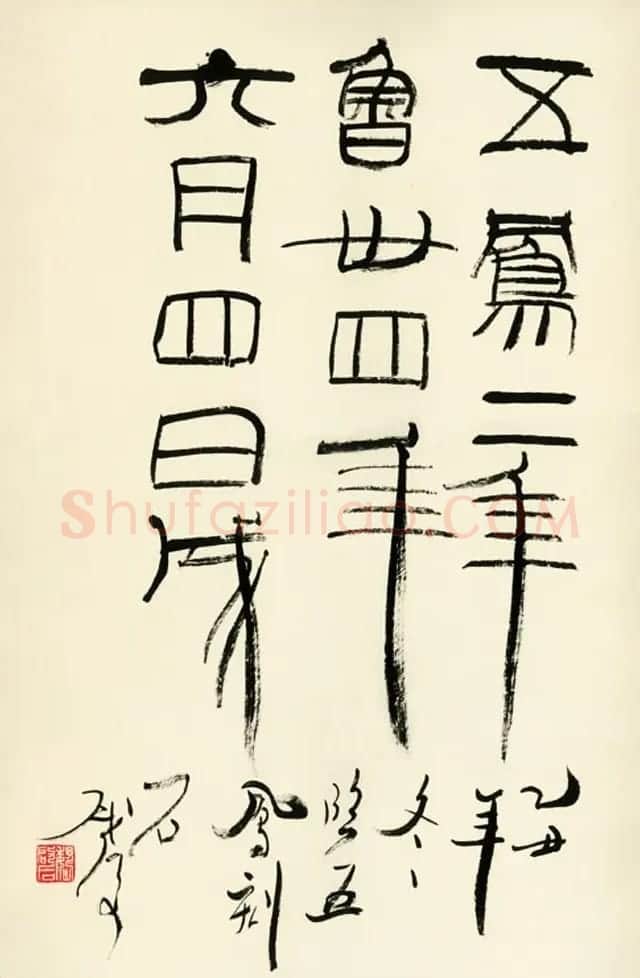 五鳳二年
魯卅四年
六月四日成
乙丑
年
冬
臨五
鳳刻
石
Shufaziliao.COM